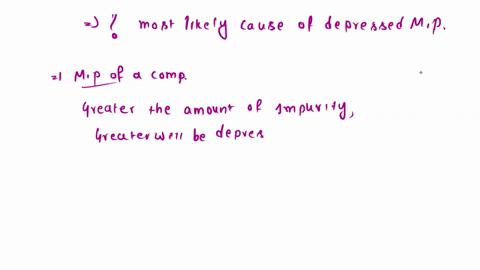 =) ? most likely cause of depressed M.P.
=) M.p of a comp.
Greater the amount of impurity,
Greater will be depres